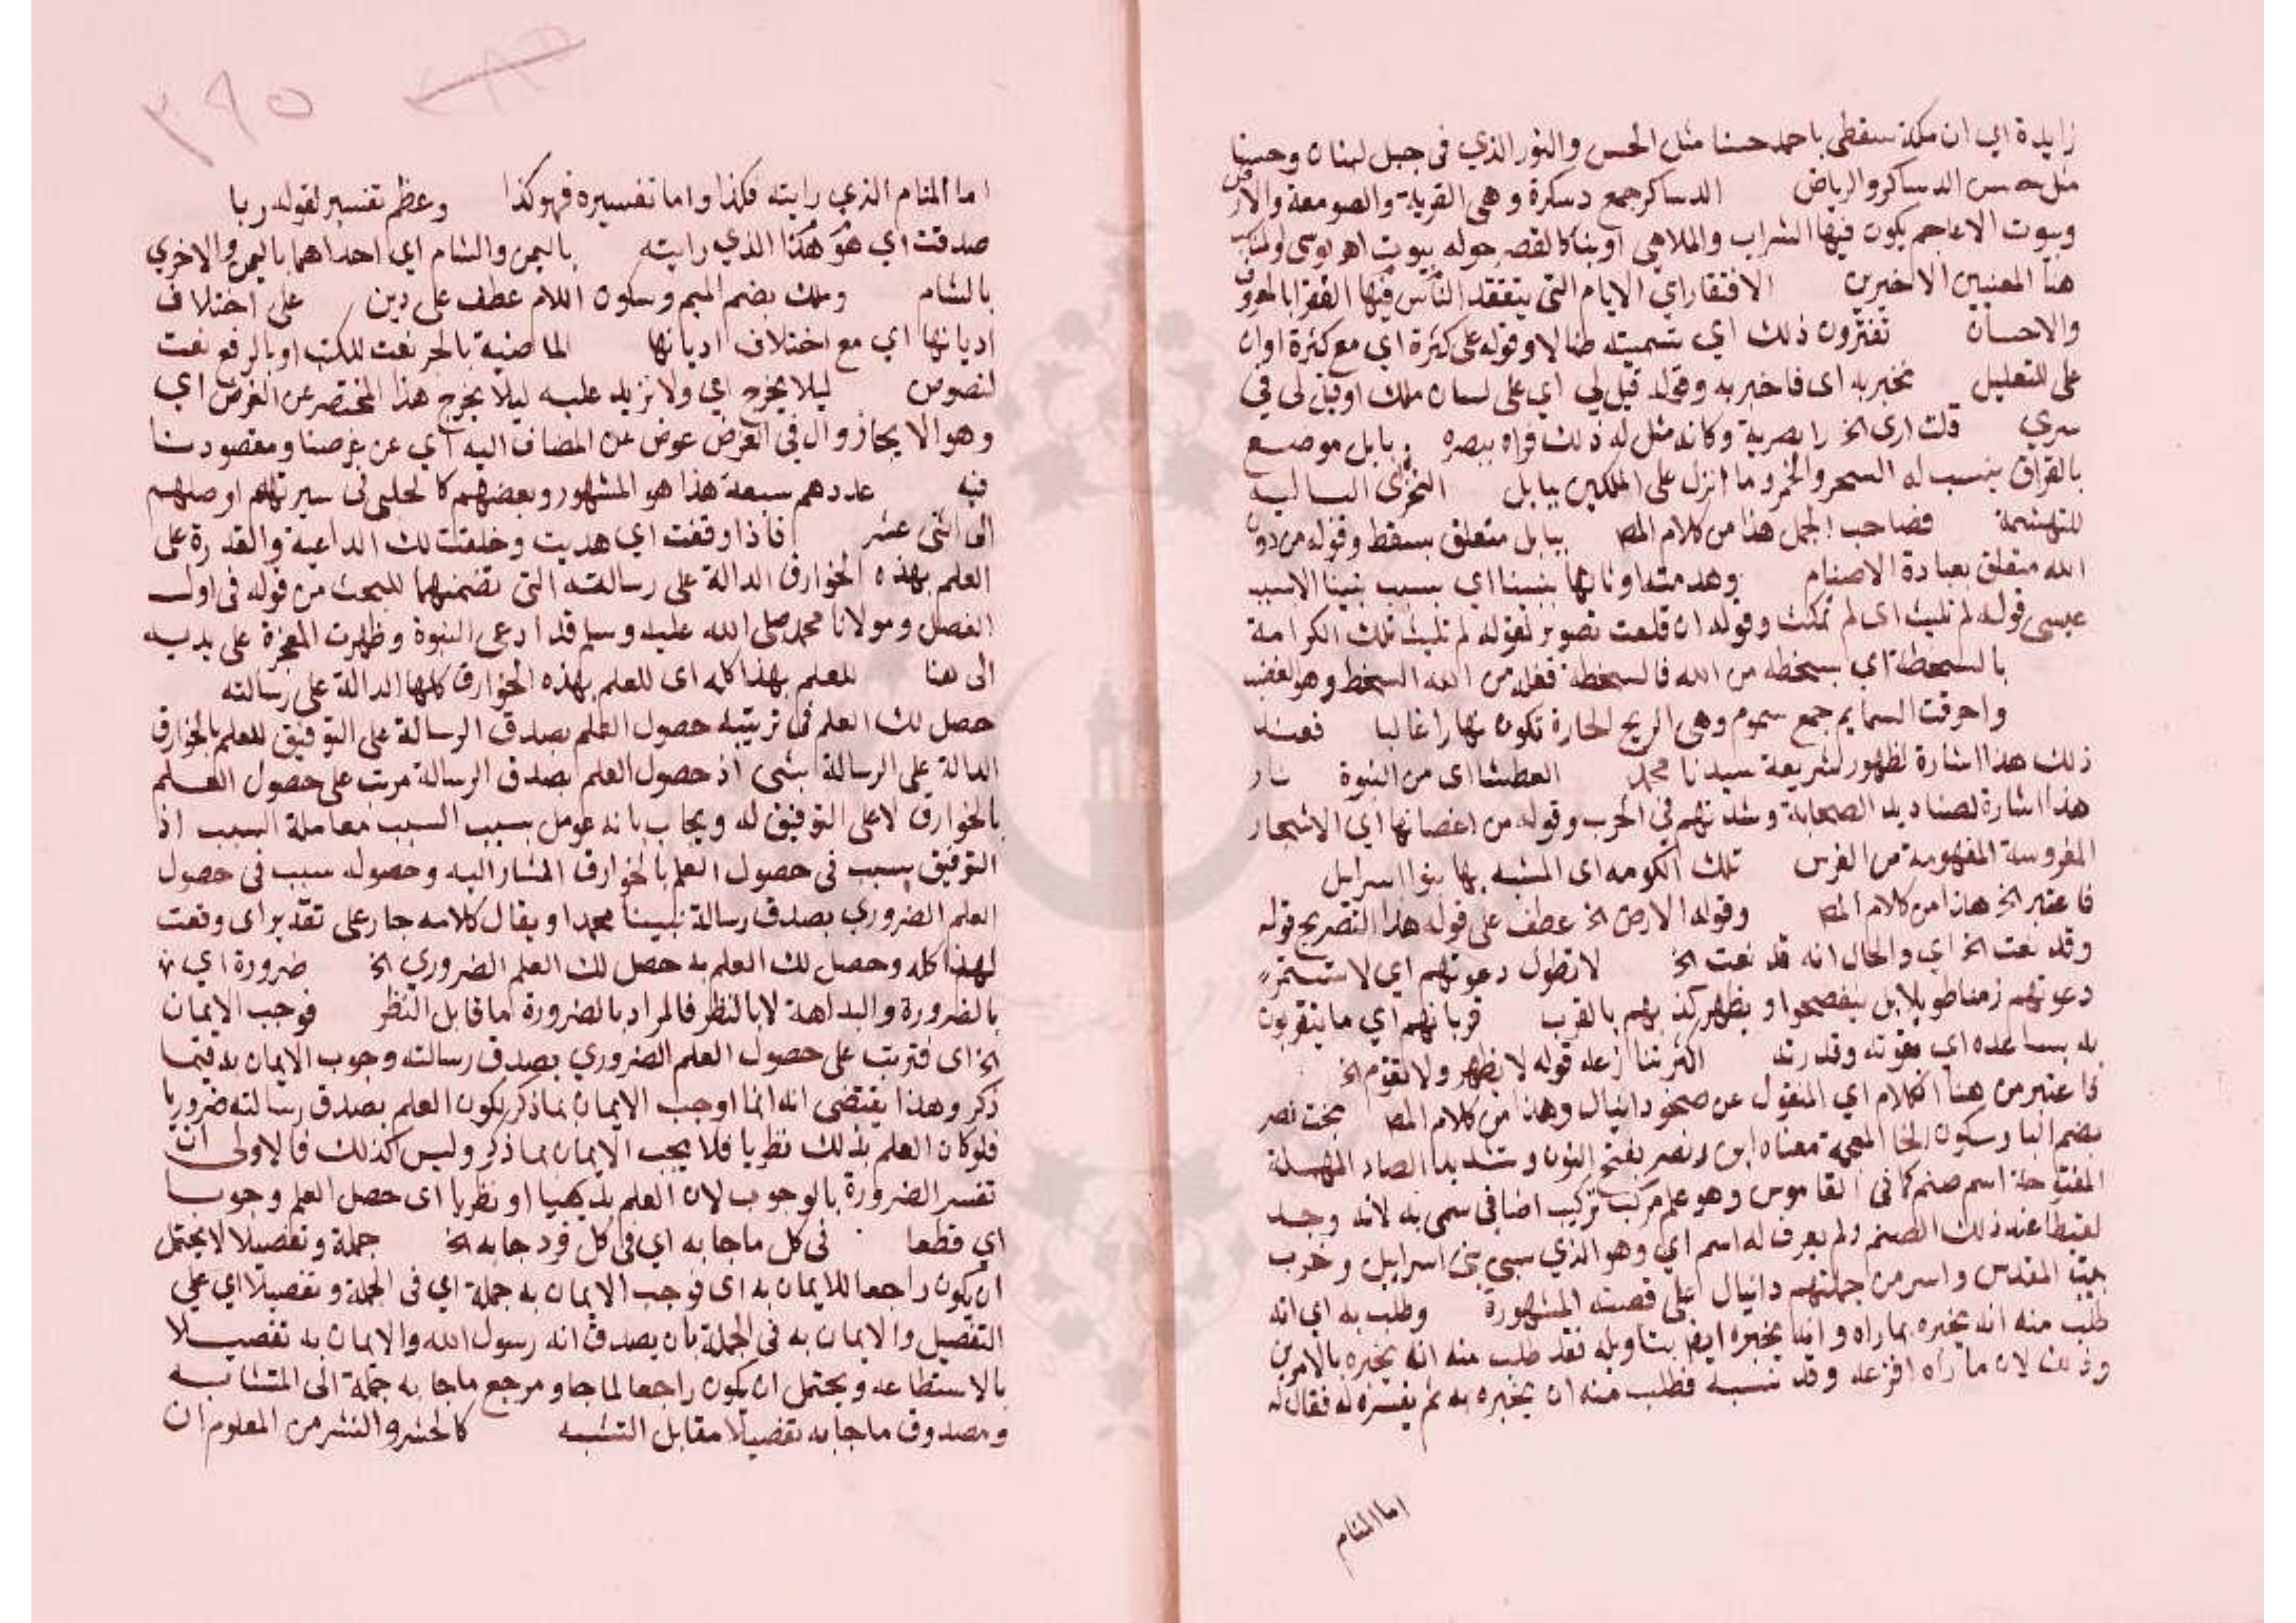 زايدة اي ان مكة ستعطى باحمد حسنا مثل الحسن والنور الذي فى جبل لبنان وحسنا
مثل حسن الدساكر والرياض الدساكر جمع دسكرة وهى القرية والصومعة والارض
وبيوت الاعاجم يكون فيها الشراب والملاهى او بنا كالقصر حوله بيوت اهـ
هنا المعنيين الاخيرين الافتقار اي الايام التى يتفقد الناس فيها الفقرا بالمعروف
والاحسان تفترون ذلك اي تسميته ضالا وقوله على كثرة اي مع كثرة او ان
على للتعليل تخبر به اى فاخبر به وقوله قيل لي اي على لسان ملك او قيل لى في
سري قلت ارى الخ را بصرية وكانه مثل له ذلك فراه ببصره وبابل موضع
بالعراق ينسب له السحر والخمر وما انزل على الملكين ببابل النخرى البالية
للتهشمة فصاحب الجمل هذا من كلام المص ببابل متعلق بسقط وقوله من دون
الله متعلق بعبادة الاصنام وهدمته اوثانها بنبينا اي بسبب نبينا لا بسبب
عيسى قوله لم تلبث اى لم تمكث وقوله ان قلعت تصوير لقوله لم تلبث تلك الكرامة
بالسخطة اي بسخطه من الله فالسخطة فعلة من الله السخط وهو الغضب
واحرقت السمايم جمع سموم وهى الريح الحارة تكون نهارا غالبا فعند
ذلك هذا اشارة لظهور شريعة سيدنا محمد العطشا اى من النبوة نار
هذا اشارة لصناديد الصحابة وشدتهم في الحرب وقوله من اغصانها اي الاشجار
المغروسة المفهومة من الغرس تلك الكومه اى المشبه بها بنوا اسرايل
فاعتبر الخ هذا من كلام المص وقوله الارض الخ عطف على قوله هذا التصريح قوله
وقد نعت الخ اي والحال انه قد نعت الخ لا تطول دعوتهم اي لا تستمر
دعوتهم زمنا طويلا بل ينفصحوا ويظهر كذبهم بالقرب قربانهم اي ما يتقربون
به بساعده اي بقوته وقدرته اقترننا ازعله قوله لا يظهر ولا تقوم الخ
فاعتبر من هنا الكلام اي المنقول عن صحف دانيال وهذا من كلام المص بخت نصر
بضم البا وسكون الخا المعجمة معناه ابن ونصر بفتح النون وتشديد الصاد المهملة
المفتوحة اسم صنم كما فى القاموس وهو علم مركب تركيب اضافى سمى به لانه وجد
لقيطا عند ذلك الصنم ولم يعرف له اسم اي وهو الذي سبى بنى اسراييل وخرب
بيت المقدس واسر من جملتهم دانيال على قصته المشهورة وطلب به اي انه
طلب منه انه يخبره بما راه وانه يخبره ايضا بتاويله فقد طلب منه انه يخبره بالامرين
وذلك لان ما رآه افزعه وقد نسيه فطلب منه ان يخبره به ثم يفسره له فقال له
اما المنام
٢٩٥
اما المنام الذي رايته فكذا واما تفسيره فهو كذا وعظم تفسير لقوله ربا
صدقت اي هو هكذا الذي رايته باليمن والشام اي احداهما باليمن والاخري
بالشام وملك بضم الميم وسكون اللام عطف على دين على اختلاف
اديانها اي مع اختلاف اديانها الماضية بالجر نعت للكتب او بالرفع نعت
لنصوص ليلا يخرج اي ولا نزيد عليه ليلا يخرج هذا المختصر عن الغرض اي
وهو الايجاز وال في الغرض عوض عن المضاف اليه اي عن غرضنا ومقصودنا
فيه عددهم سبعة هذا هو المشهور وبعضهم كالحلبى فى سيرته اوصلهم
الى اثنى عشر فاذا وقفت اي هديت وخلقت لك الداعية والقدرة على
العلم بهذه الخوارق الدالة على رسالته التى تضمنهما المبحث من قوله فى اول
الفصل ومولانا محمد صلى الله عليه وسلم قد ادعى النبوة وظهرت المعجزة على يديه
الى هنا للعلم بهذا كله اى للعلم بهذه الخوارق كلها الدالة على رسالته
حصل لك العلم فى ترتيبه حصول العلم بصدق الرسالة على التوفيق للعلم بالخوارق
الدالة على الرسالة بشى اذ حصول العلم بصدق الرسالة مرتب على حصول العلم
بالخوارق لا على التوفيق له ويجاب بانه عومل بسبب السبب معاملة السبب اذ
التوفيق سبب فى حصول العلم بالخوارق المشار اليه وحصوله سبب فى حصول
العلم الضروري بصدق رسالة نبينا محمد او يقال كلامه جار على تقدير اى وقعت
لهذا كله وحصل لك العلم به حصل لك العلم الضروري الخ ضرورة اي
بالضرورة والبداهة لا بالنظر فالمراد بالضرورة ما قابل النظر فوجب الايمان
الخ اى فترتب على حصول العلم الضروري بصدق رسالته وجوب الايمان به فيما
ذكر وهذا يقتضى انه انما اوجب الايمان بما ذكر لكون العلم بصدق رسالته ضروريا
فلو كان العلم بذلك نظريا فلا يجب الايمان بما ذكر وليس كذلك فالاولى ان
تفسر الضرورة بالوجوب لان العلم بديهيا او نظريا اى حصل العلم وجوبا
اي قطعا فى كل ما جا به اي فى كل فرد جا به الخ جملة وتفصيلا لا يحتمل
ان يكون راجعا للايمان به اى فوجب الايمان به جملة اي فى الجملة وتفصيلا اي على
التفصيل والايمان به فى الجملة بان يصدق انه رسول الله والايمان به تفصيلا
بالاستطاعه ويحتمل ان يكون راجعا لما جا ومرجع ما جا به جملة الى المتشابه
ومصدوق ما جا به تفصيلا مقابل التشبه كالحشر والنشر من المعلوم ان